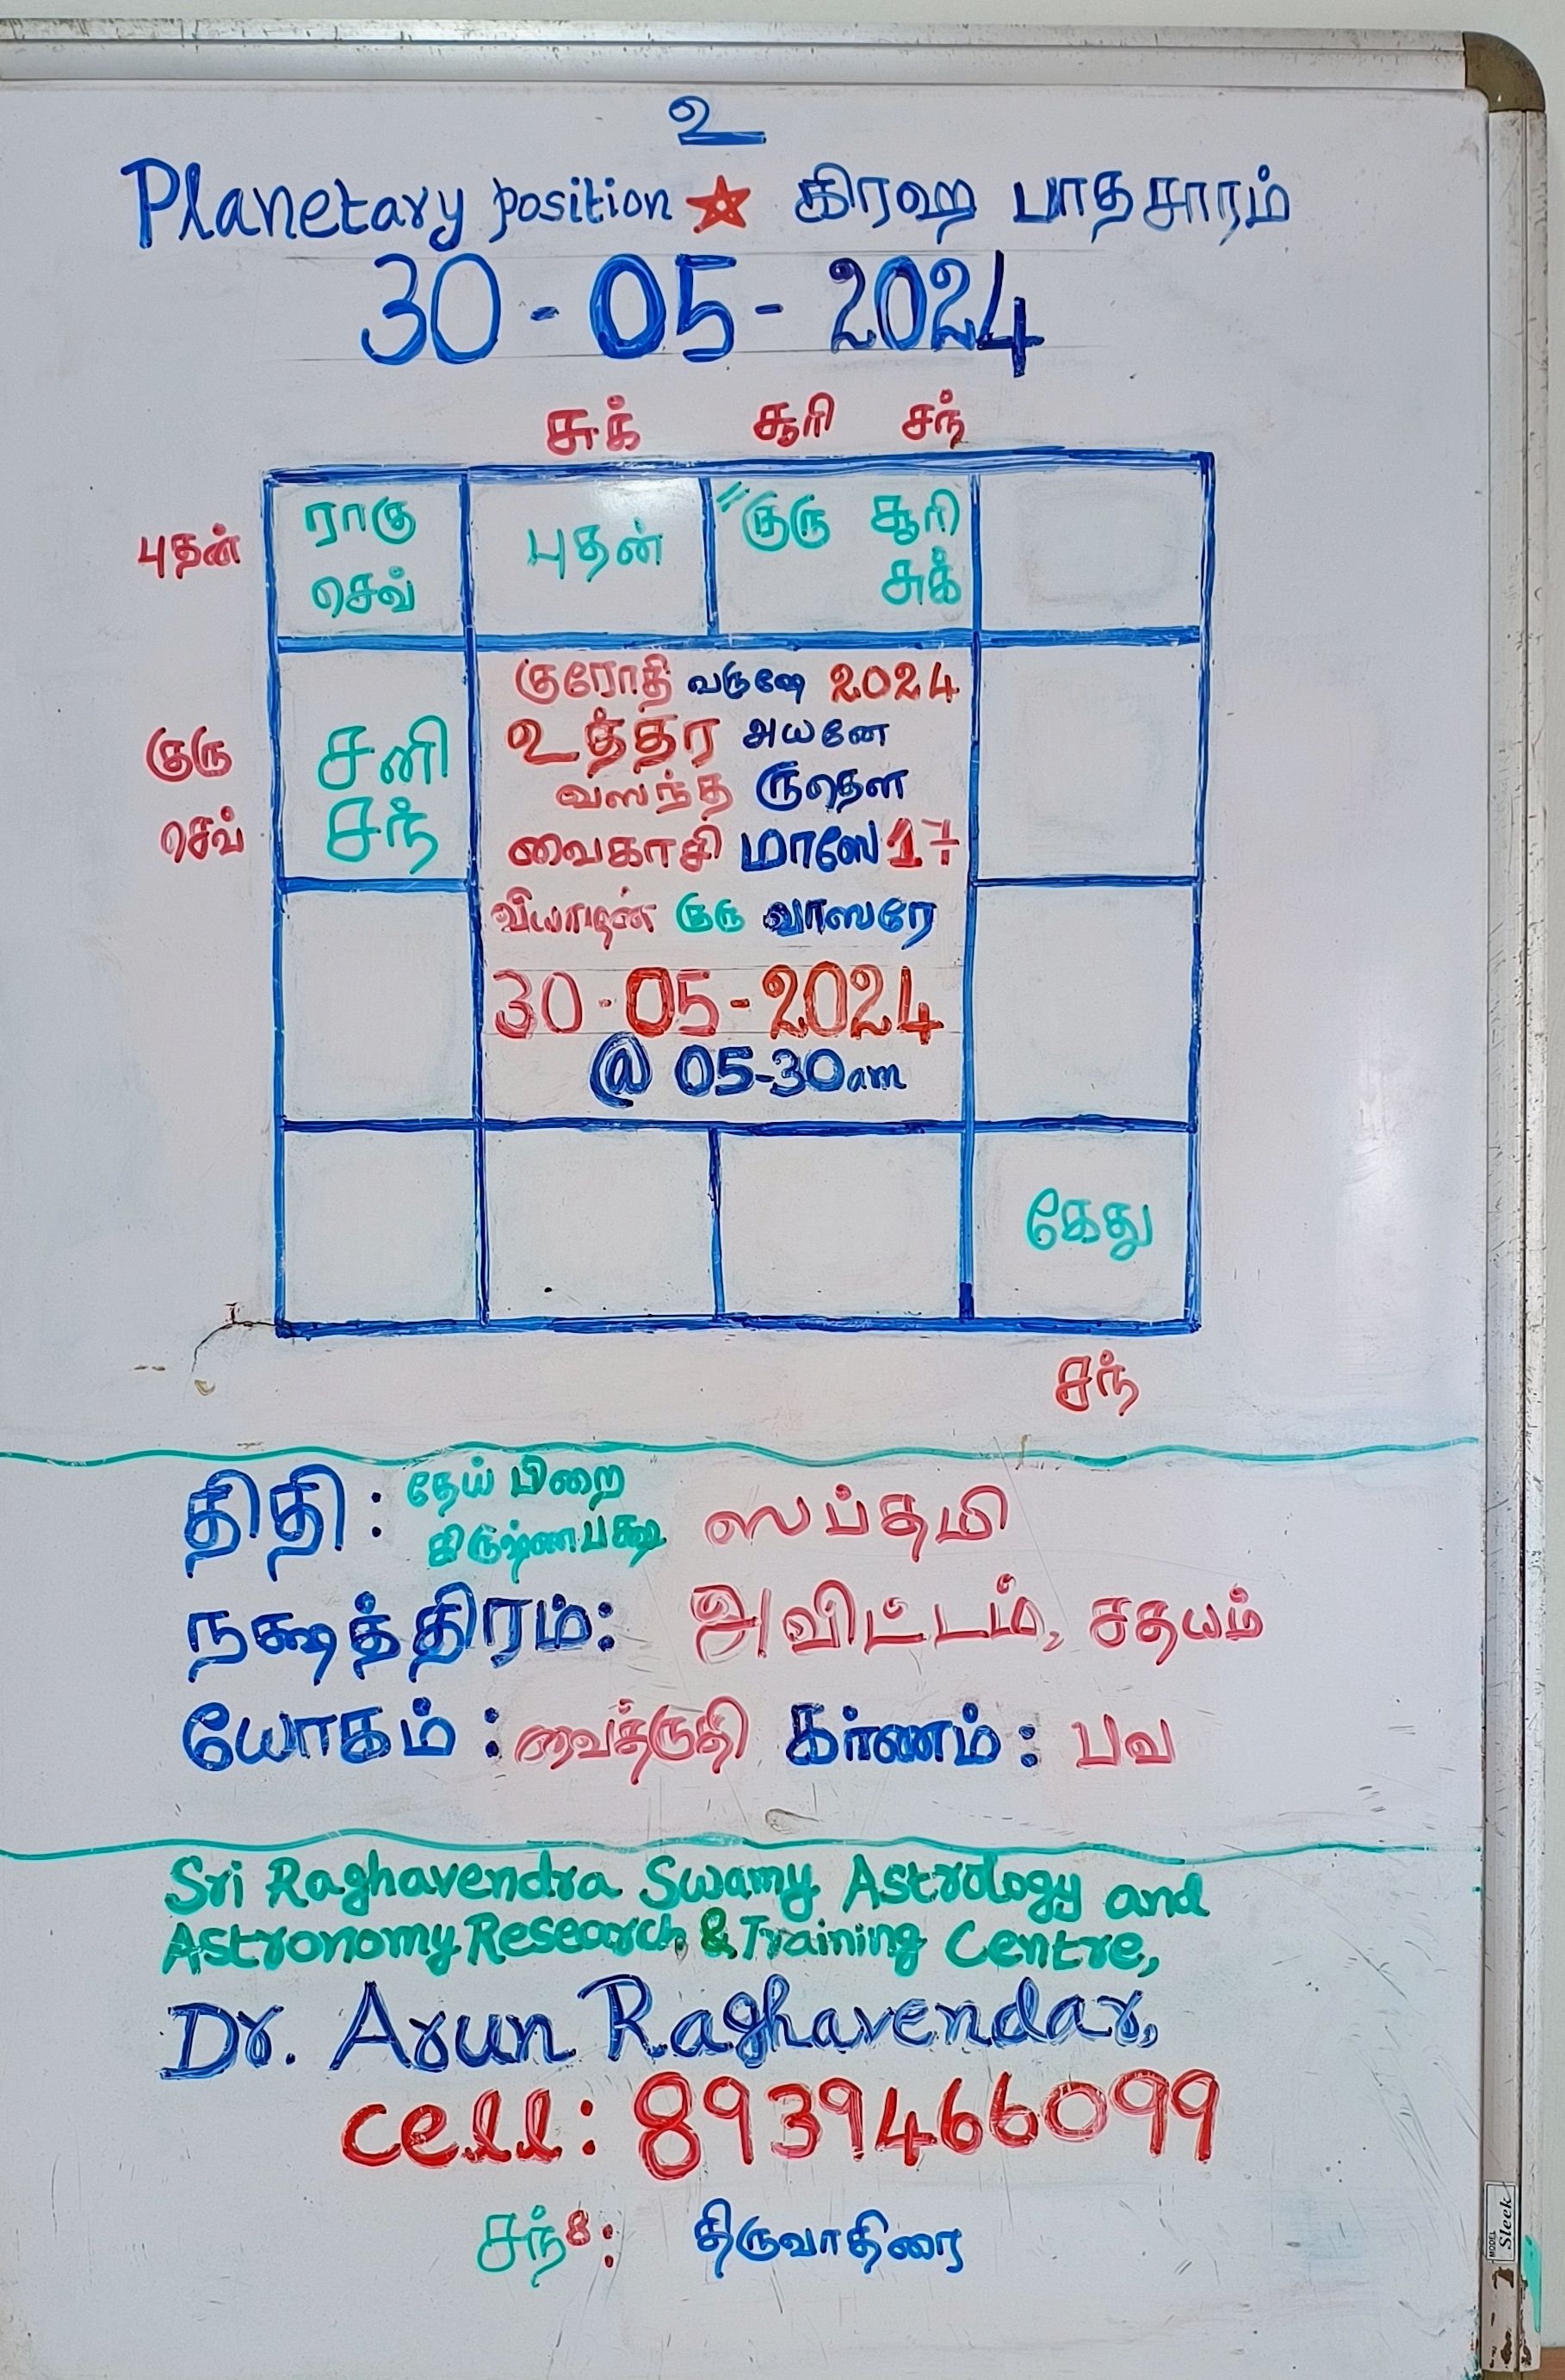 உ
Planetary position ★ கிரஹ பாதசாரம்
30-05-2024
சுக் சூரி சந்
புதன்
ராகு
செவ்
புதன்
"குரு சூரி
சுக்
குரு
செவ்
சனி
சந்
குரோதி வருஷே 2024
உத்தர அயனே
வஸந்த ருதௌ
வைகாசி மாஸே 17
வியாழன் குரு வாஸரே
30-05-2024
@ 05-30am
கேது
சந்
திதி: தேய் பிறை
கிருஷ்ணபக்ஷ ஸப்தமி
நக்ஷத்திரம்: அவிட்டம், சதயம்
யோகம்: வைத்ருதி கர்ணம்: பவ
Sri Raghavendra Swamy Astrology and
Astronomy Research & Training Centre,
Dr. Arun Raghavendar,
cell: 8939466099
சந்8: திருவாதிரை
MODEL
Sleek